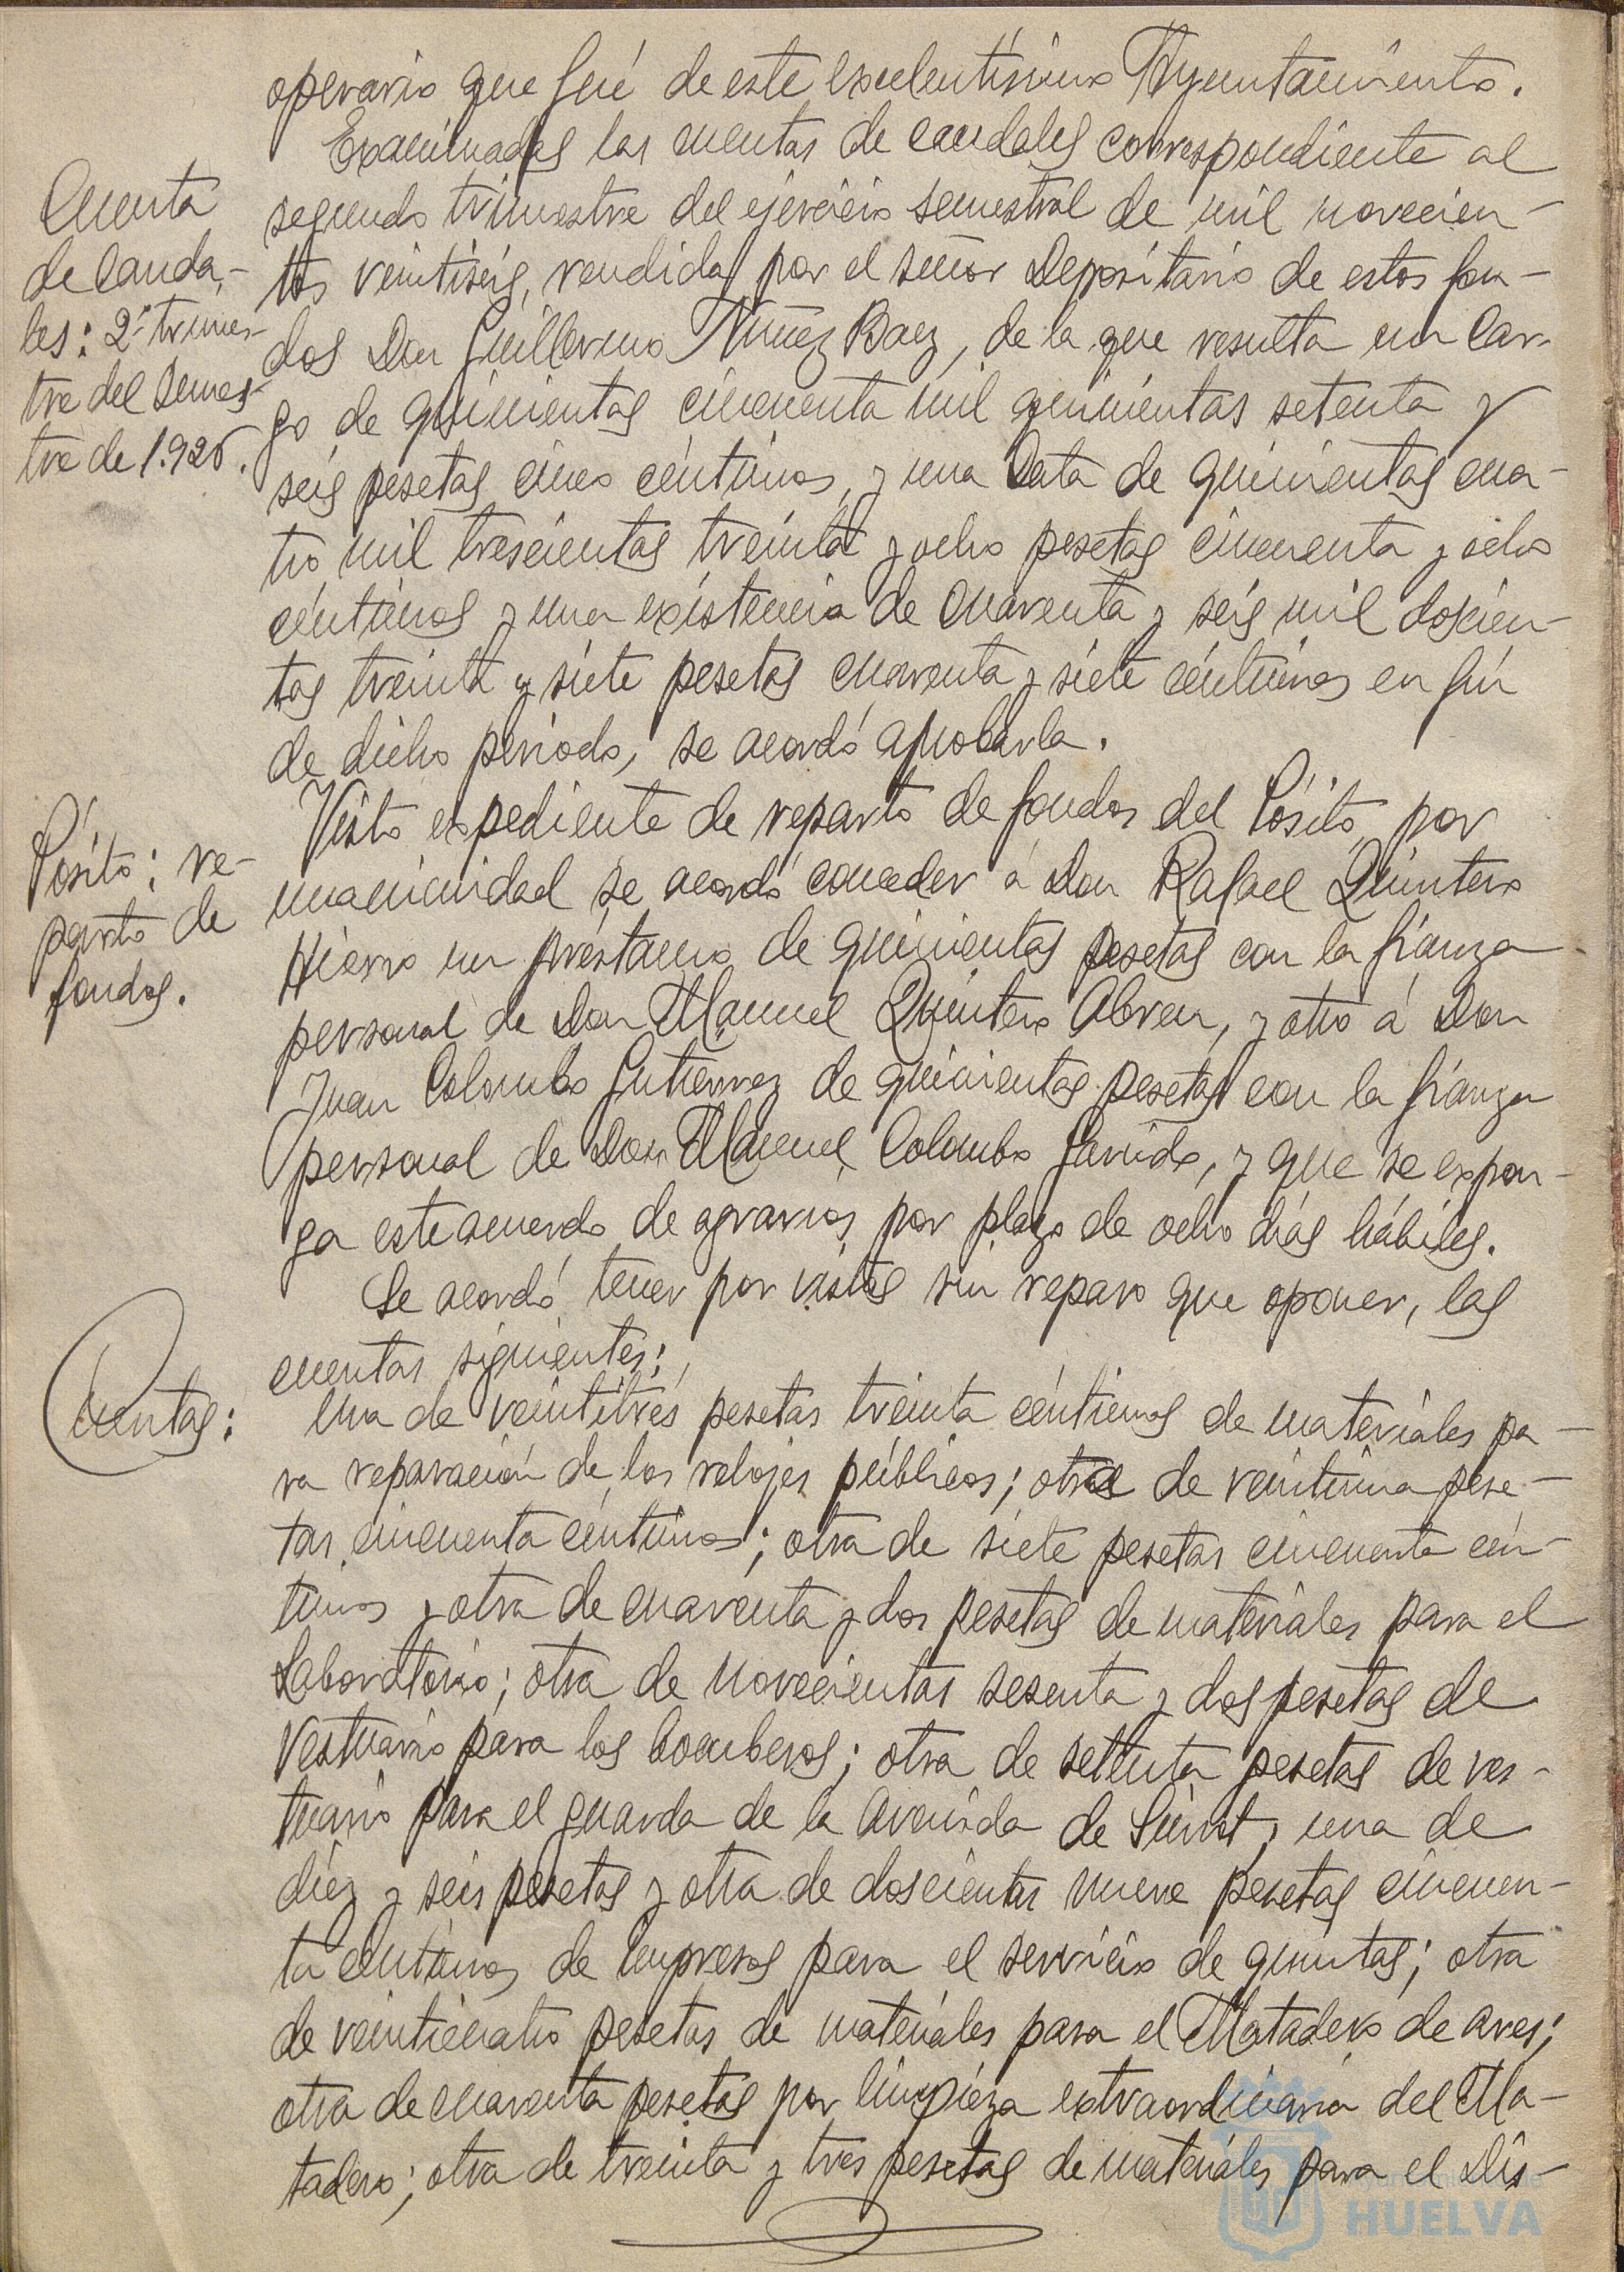 operario que fué de este Excelentísimo Ayuntamiento.
Cuenta
de Cauda-
les: 2º trimes-
tre del Semes-
tre de 1.926.
Examinadas las cuentas de caudales correspondiente al
segundo trimestre del ejercicio semestral de mil novecien-
tos veintiseis, rendidas por el señor Depositario de estos fon-
dos Don Guillermo Nuñez Baez, de la que resulta un Car-
go de quinientas cincuenta mil quinientas setenta y
seis pesetas cinco céntimos, y una Data de quinientas cua-
tro mil trescientas treinta y ocho pesetas cincuenta y ocho
céntimos y una existencia de cuarenta y seis mil doscien-
tas treinta y siete pesetas cuarenta y siete céntimos en fin
de dicho periodo, se acordó aprobarla.
Pósito: re-
parto de
fondos.
Visto expediente de reparto de fondos del Pósito, por
unanimidad se acordó conceder á Don Rafael Quintero
Hierro un préstamo de quinientas pesetas con la fianza
personal de Don Manuel Quintero Abreu, y otro á Don
Juan Colombo Gutierrez de quinientas pesetas con la fianza
personal de Don Manuel Colombo Garrido, y que se expon-
ga este acuerdo de agravios por plazo de ocho dias hábiles.
Se acordó tener por vistas sin reparo que oponer, las
cuentas siguientes:
Cuentas:
Una de veintitrés pesetas treinta céntimos de materiales pa-
ra reparación de los relojes públicos; otra de veintiuna pese-
tas cincuenta céntimos; otra de siete pesetas cincuenta cén-
timos y otra de cuarenta y dos pesetas de materiales para el
Laboratorio; otra de novecientas sesenta y dos pesetas de
Vestuario para los bomberos; otra de setenta pesetas de ves-
tuario para el guarda de la Avenida de Siurot, una de
diez y seis pesetas y otra de doscientas nueve pesetas cincuen-
ta céntimos de impresos para el servicio de quintas; otra
de veinticuatro pesetas de materiales para el Matadero de aves;
otra de cuarenta pesetas por limpieza extraordinaria del Ma-
tadero; otra de treinta y tres pesetas de materiales para el Dis-
Ayuntamiento de
HUELVA